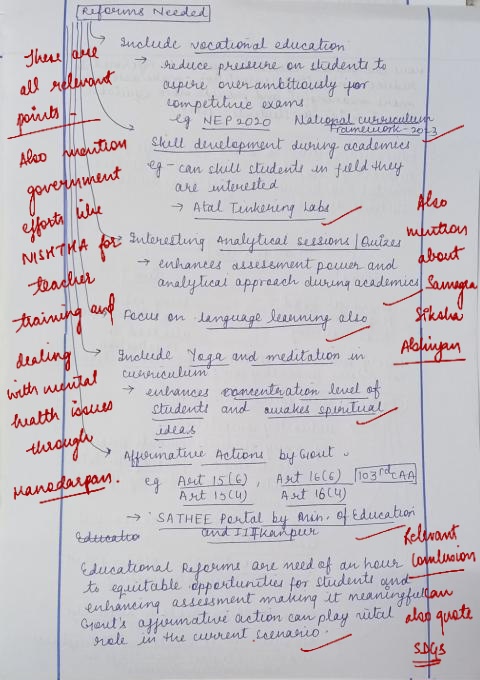 Reforms Needed
Include vocational education
→ reduce pressure on students to
aspire overambitiously for
competitive exams
eg NEP 2020 National curriculum
Framework-2023
Skill development during academics
eg - can skill students in field they
are interested
→ Atal Tinkering Labs
Interesting Analytical sessions/Quizes
→ enhances assessment power and
analytical approach during academics
Focus on language learning also
Include Yoga and meditation in
curriculum
→ enhances concentration level of
students and awakes spiritual
ideas
Affirmative Actions by Govt.
eg Art 15(6), Art 16(6) 103rd CAA
Art 15(4) Art 16(4)
→ SATHEE Portal by Min. of Education
and IIT Kanpur
Educatio
Educational Reforms are need of an hour
to equitable opportunities for students and
enhancing assessment making it meaningful.
Govt's affirmative action can play vital
role in the current scenario.
These are
all relevant
points -
Also mention
government
efforts like
NISHTHA for
teacher
training and
dealing
with mental
health issues
through
Manodarpan.
Also
mention
about
Samagra
Siksha
Abhiyan
Relevant
Conclusion
can
also quote
SDGs